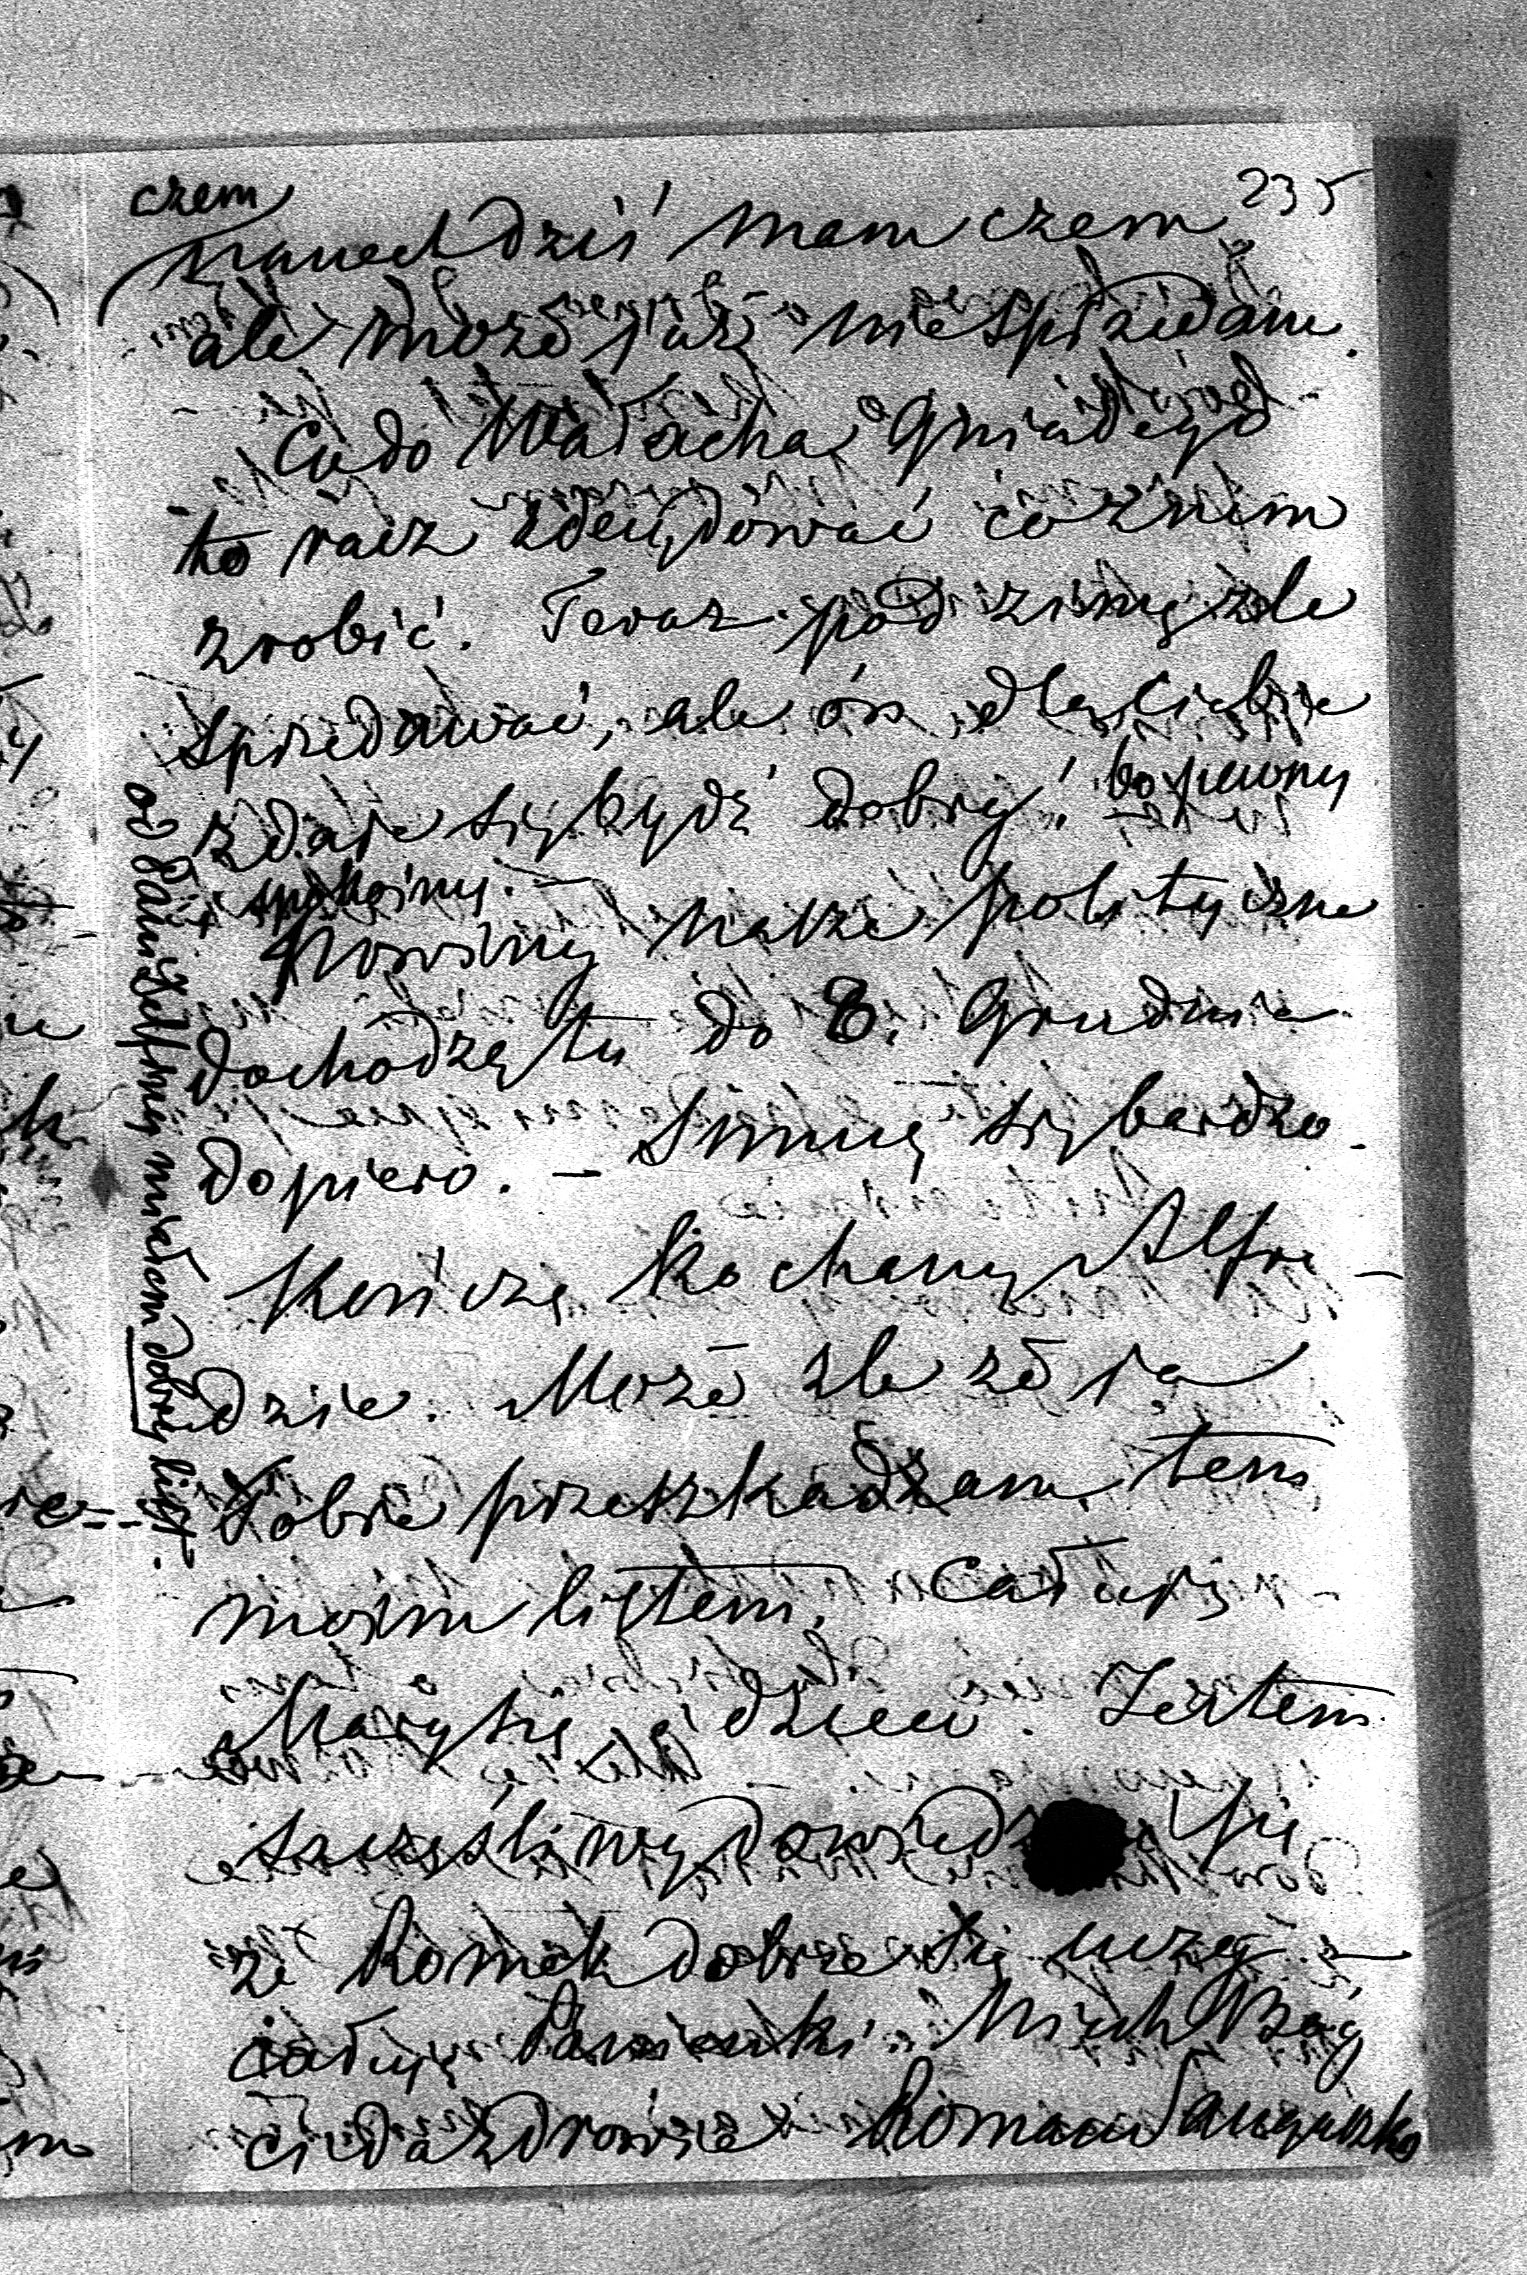 235
czem
nawet dziś mam czem
ale może już nie sprzedam.
Co do Wałacha Gniadego
to racz zdecydować co z nim
zrobić. Teraz pod zimę źle
sprzedawać, ale ón dla Ciebie
zdaje się bydź dobry! bo pewny
i spokojny. —
Nowiny nasze polityczne
dochodzą tu do 8. Grudnia
dopiero. — Smucę się bardzo.
Kończę kochany Alfre-
dzie. Może źle że ja
Tobie przeszkadzam tem
moim listem. Całuję
Marysię i dzieci. Jestem
szczęśliwy dowiedz się
że Romek dobrze się uczy —
całuję Panienki. Niech Bóg
Ci da zdrowie Roman Sanguszko
od Pani miałem dobry list.